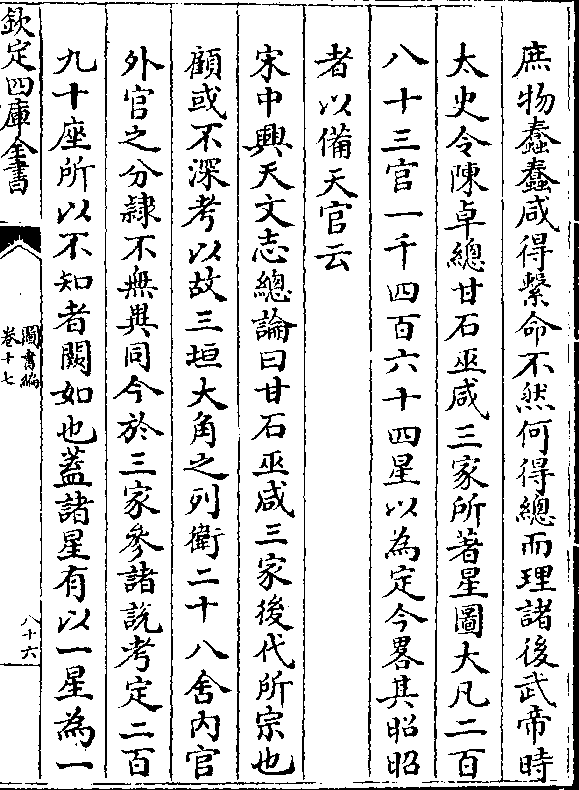 庶物蠢蠢咸得繫命不然何得總而理諸後武帝時
太史令陳卓總甘石巫咸三家所著星圖大凡二百
八十三官一千四百六十四星以為定今畧其昭昭
者以備天官云
宋中興天文志總論曰甘石巫咸三家後代所宗也
顧或不深考以故三垣大角之列衛二十八舍內官
外官之分隸不無異同今於三家參諸說考定二百
九十座所以不知者闕如也蓋諸星有以一星為一
欽定四庫全書
圖書編
卷十七
八十六